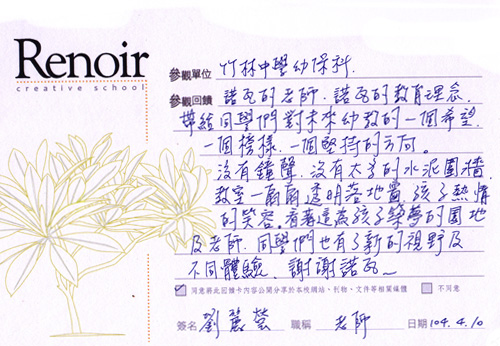 Renoir
creative school
參觀單位 竹林中學幼保科.
參觀回饋 諾瓦的老師.諾瓦的教育理念.
帶給同學們對未來幼教的一個希望.
一個榜樣.一個堅持的方向。
沒有鐘聲.沒有太多的水泥圍牆.
教室一扇扇透明落地窗.孩子熱情
的笑容.看著這為孩子築夢的園地
及老師.同學們也有了新的視野及
不同體驗.謝謝諾瓦~
同意將此回饋卡內容公開分享於本校網站、刊物、文件等相關媒體 不同意
簽名 劉蕙瑩 職稱 老師 日期 104.4.10